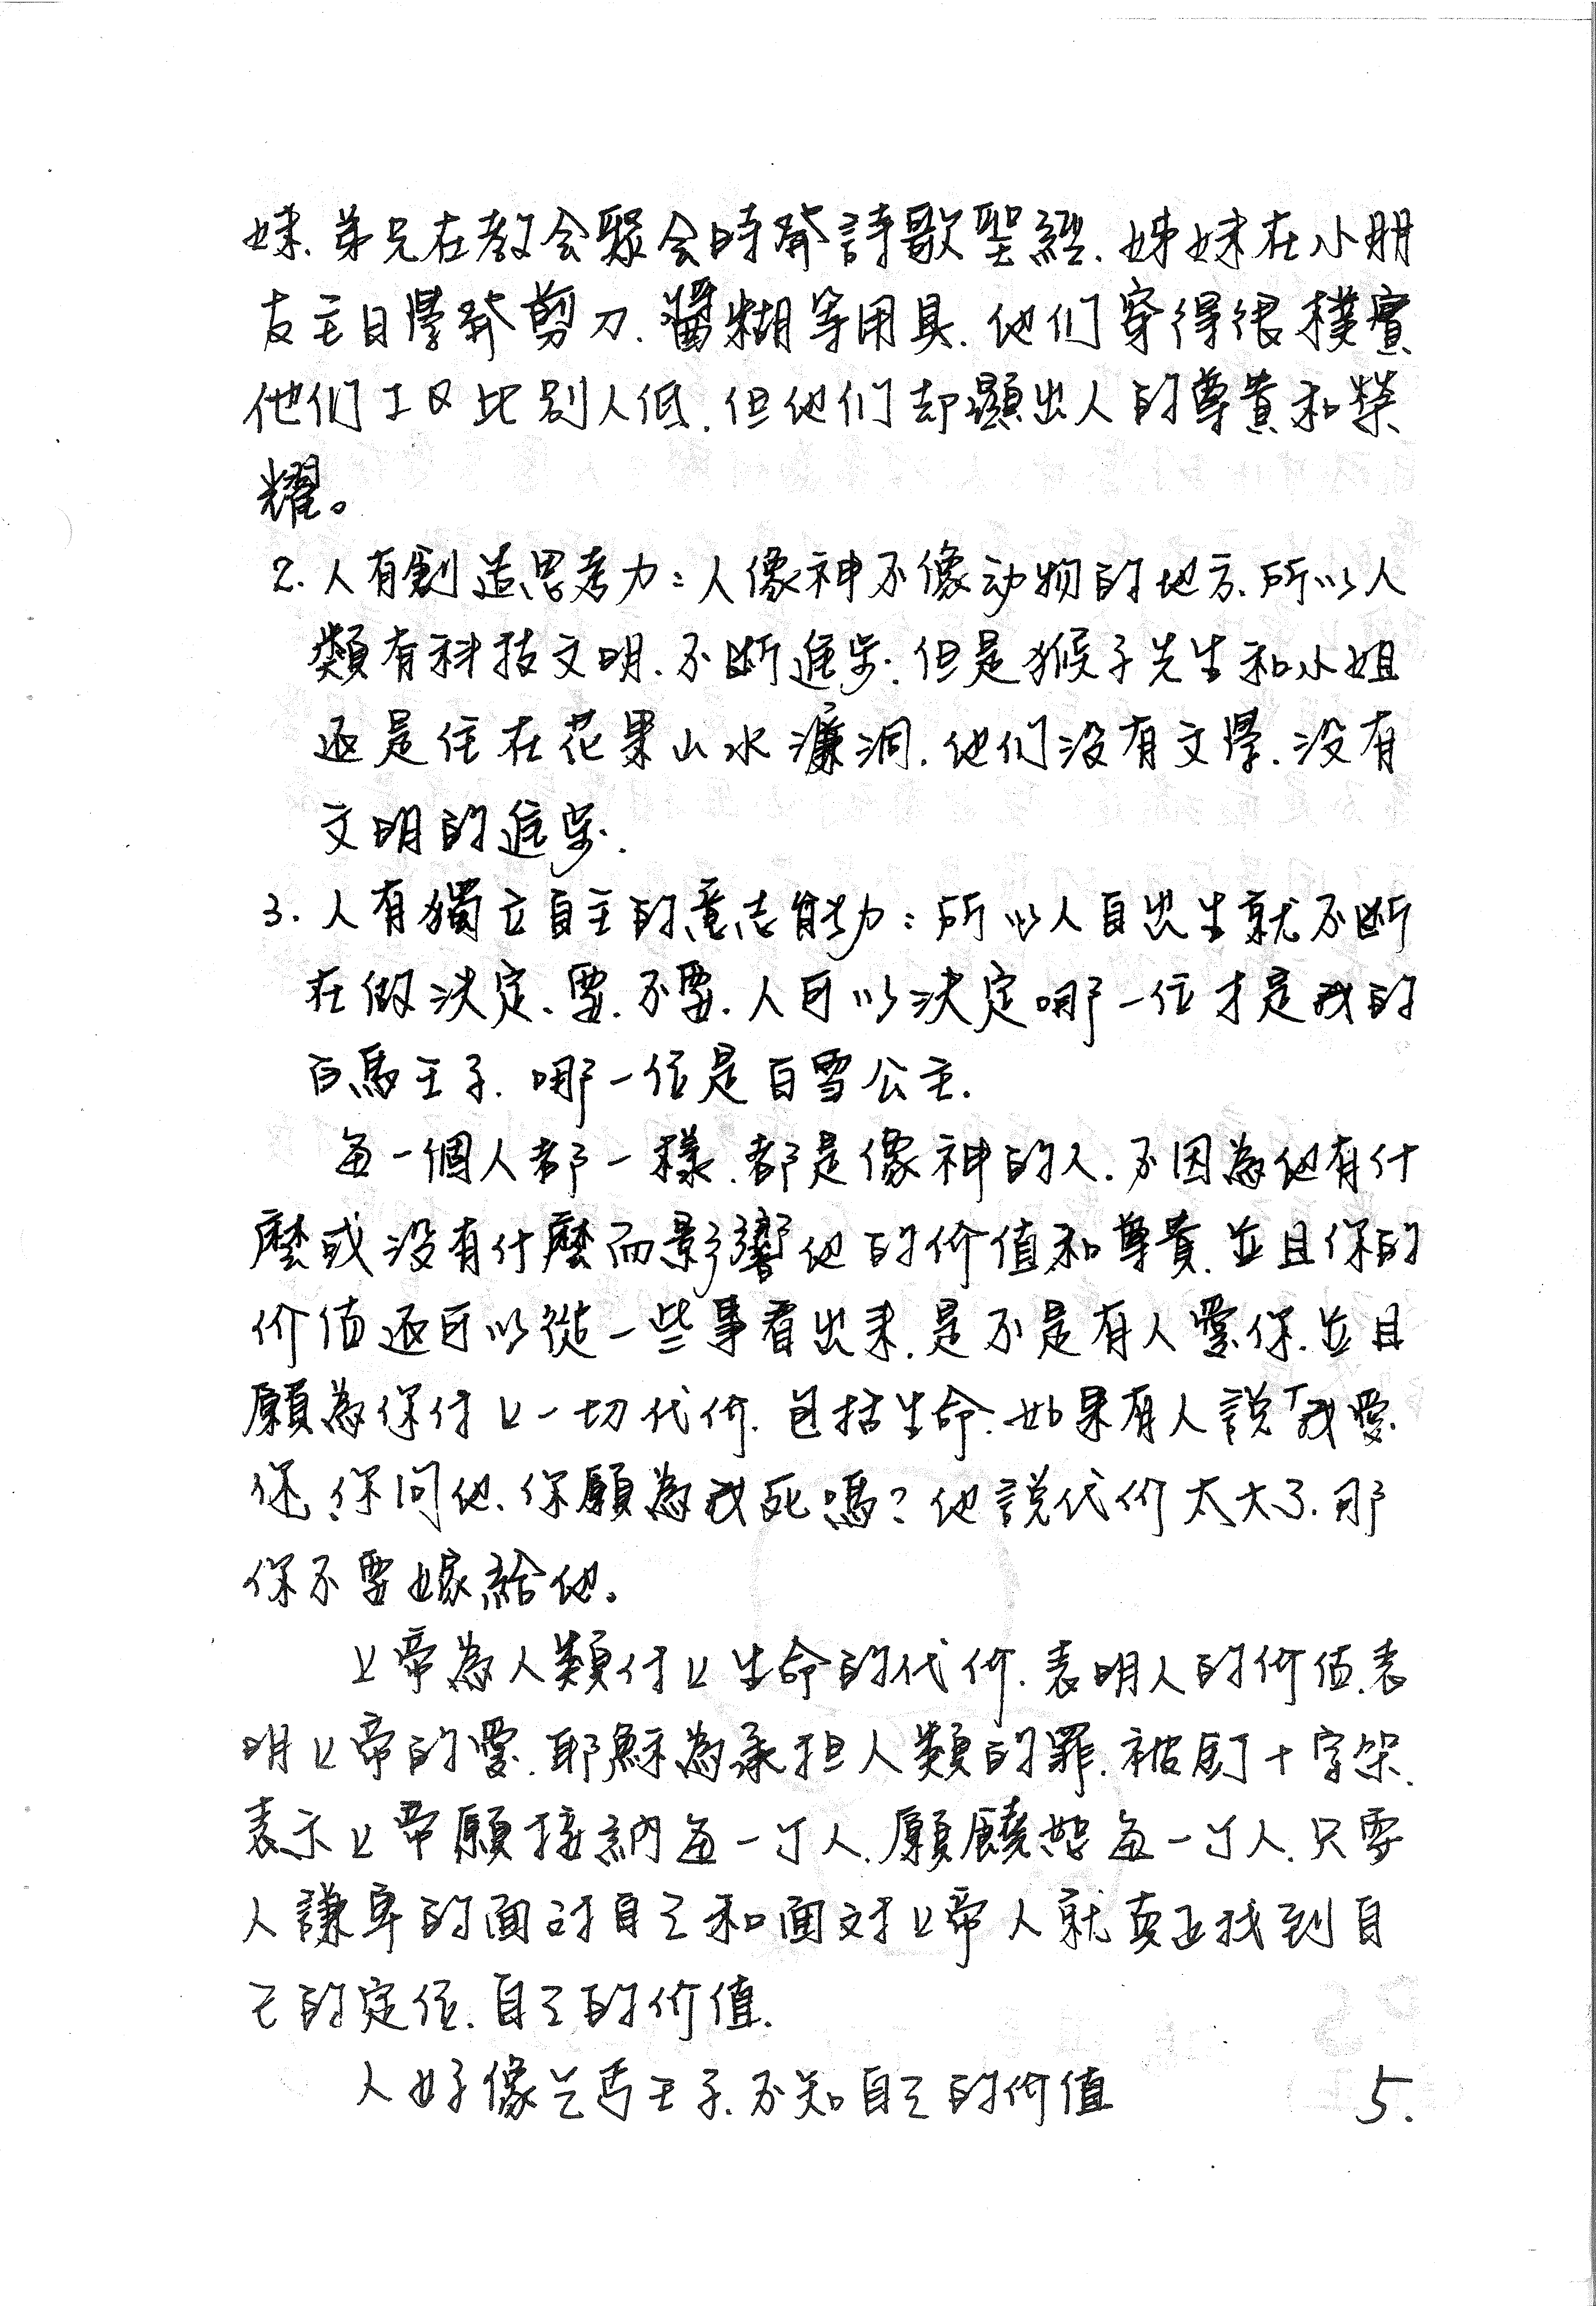 妹.弟兄在教会聚会時發詩歌聖經.姊妹在小朋
友主日學發剪刀.醬糊等用具.他们穿得很樸實
他们工又比别人低.但他们却顯出人的尊貴和榮
耀。
2.人有創造思考力:人像神不像动物的地方.所以人
類有科技文明.不断進步.但是猴子先生和小姐
还是住在花果山水濂洞.他们没有文學.没有
文明的進步.
3.人有獨立自主的意志能力:所以人自出生就不断
在做决定.要.不要.人可以决定哪一位才是我的
白馬王子.哪一位是白雪公主.
每一個人都一樣.都是像神的人.不因為他有什
麼或没有什麼而影響他的价值和尊貴.並且你的
价值还可以從一些事看出来.是不是有人愛你.並且
願為你付上一切代价.包括生命.如果有人說「我愛
你,你问他.你願為我死嗎?他說代价太大了.那
你不要嫁給他。
上帝為人類付上生命的代价.表明人的价值.表
明上帝的愛.耶穌為承担人類的罪.被釘十字架.
表示上帝願接納每一个人.願饒恕每一个人.只要
人謙卑的面討自己和面对上帝人就真正找到自
己的定位.自己的价值.
人好像乞丐王子.不知自己的价值
5.